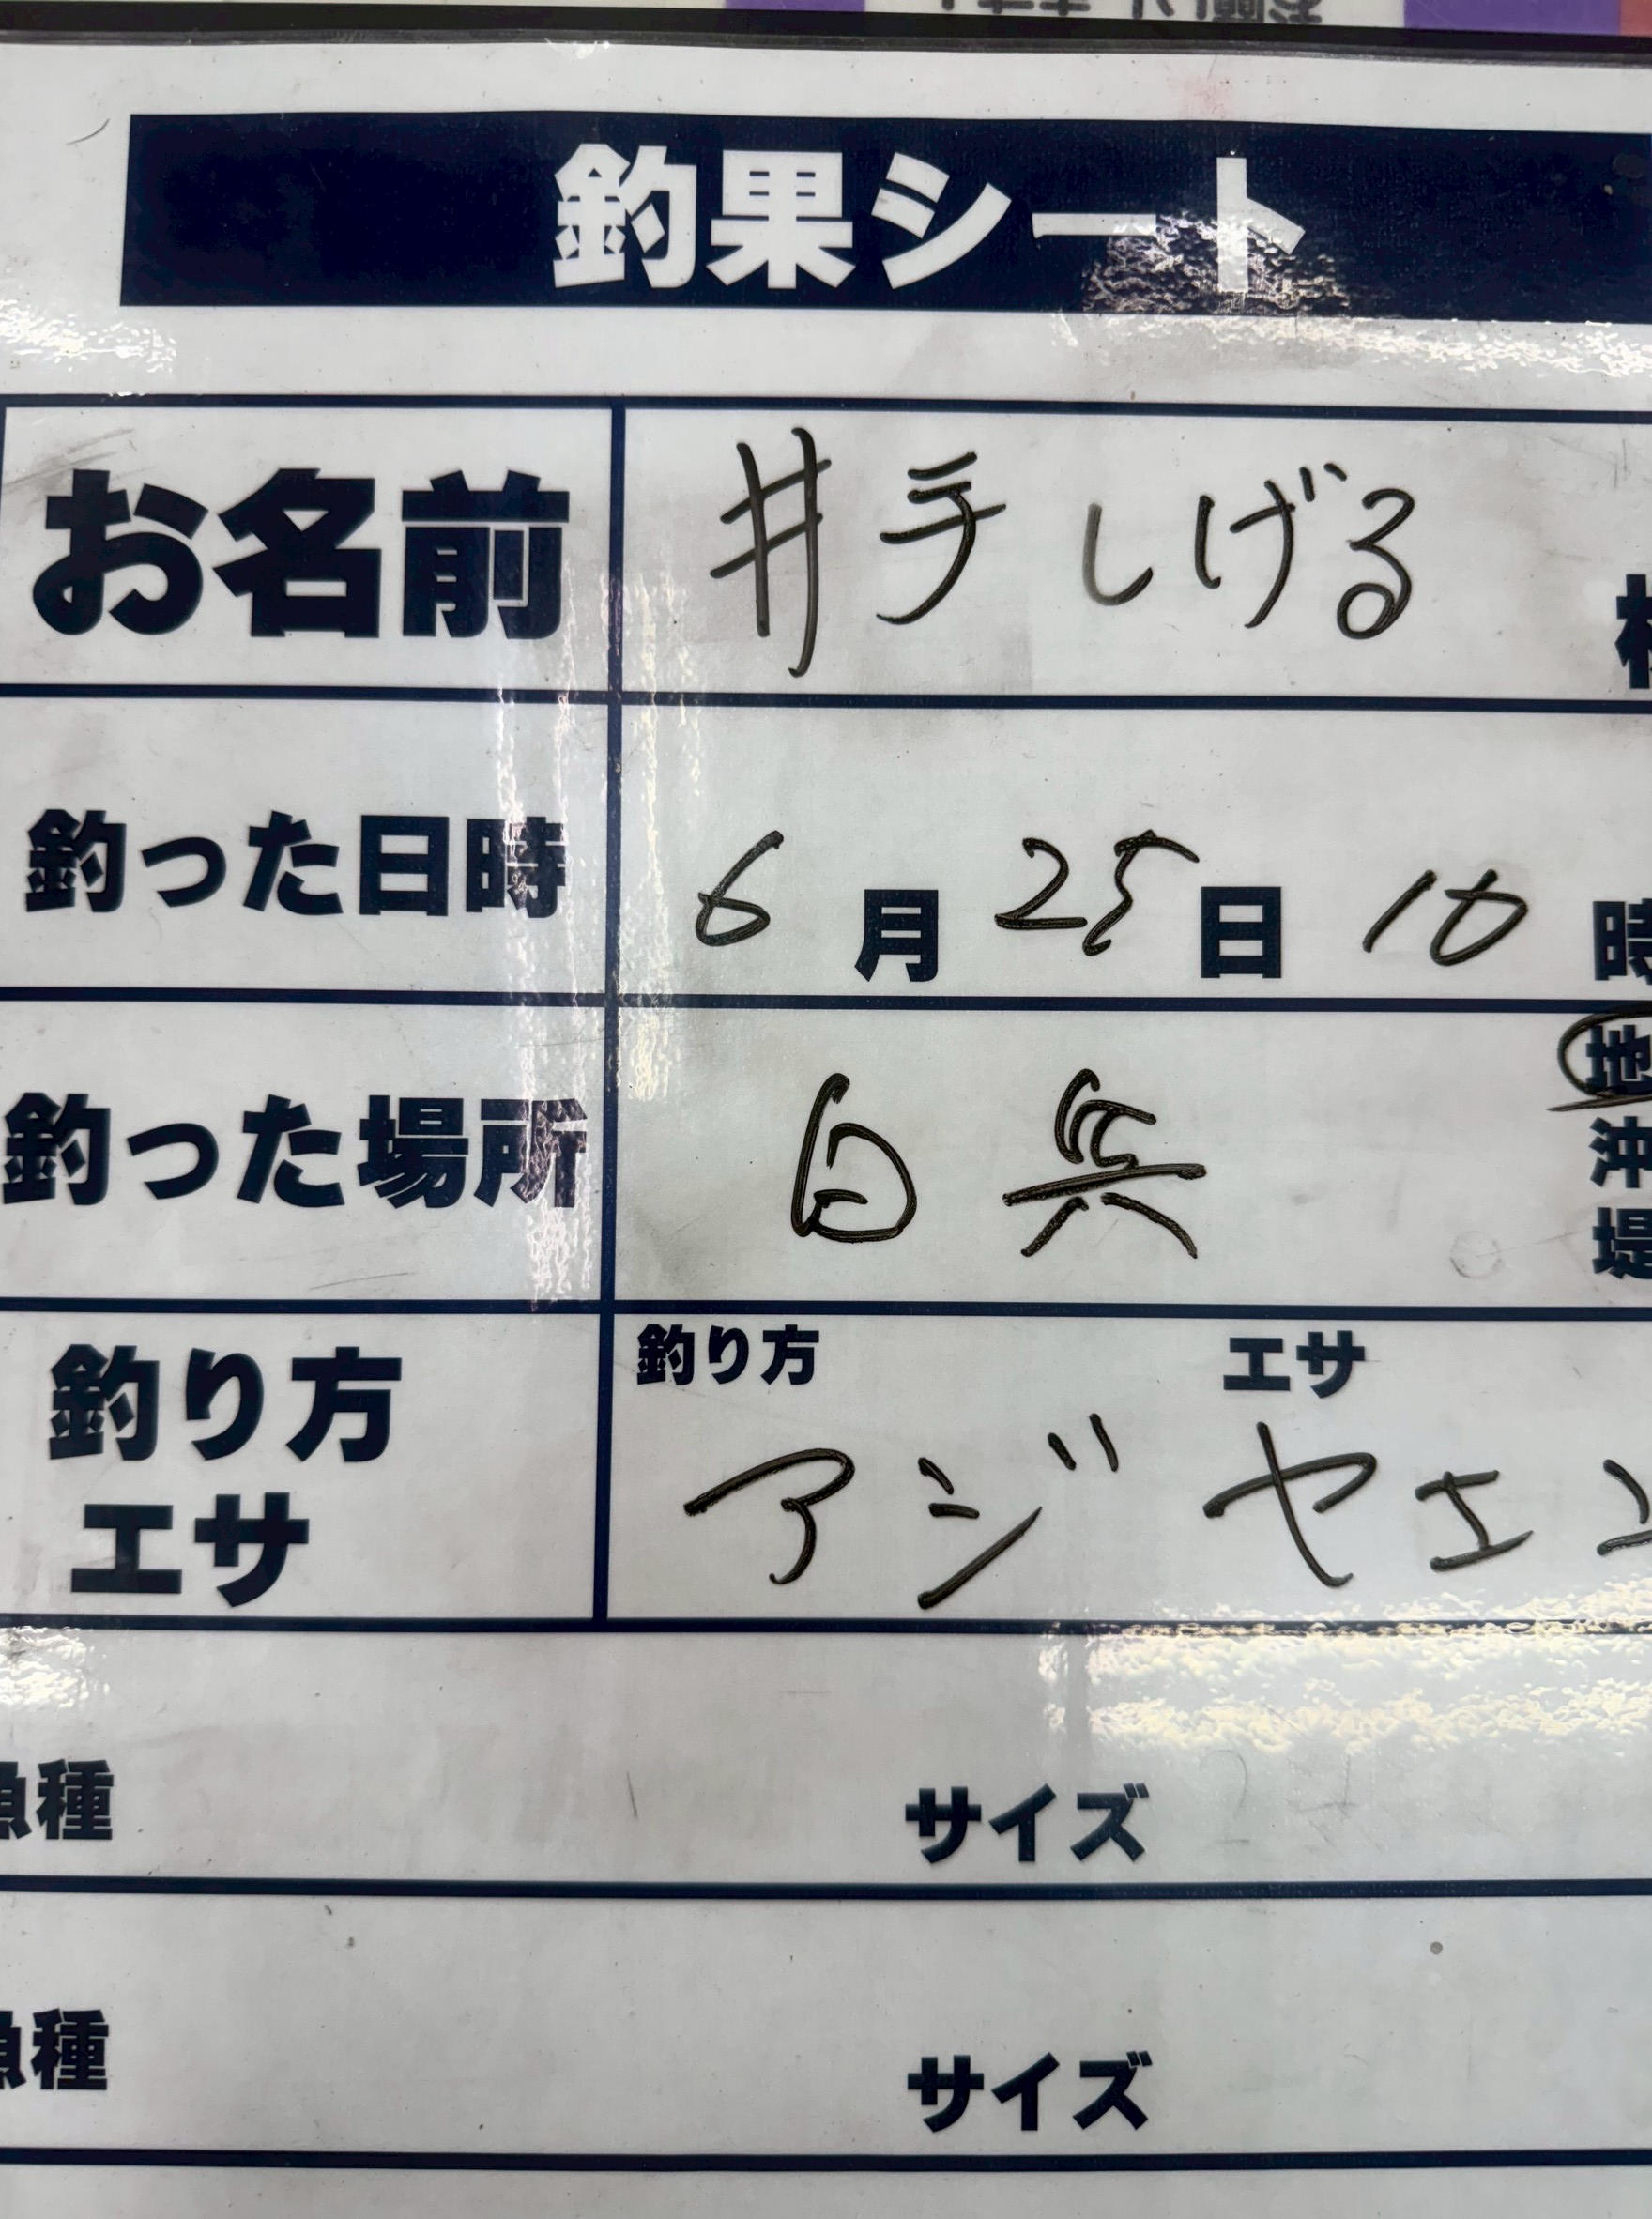 釣果シート
お名前 井手しげる 様
釣った日時 6月25日10時
釣った場所 白兵 地
沖
堤
釣り方 エサ
釣り方
エサ
アジ ヤエン
魚種 サイズ
魚種 サイズ